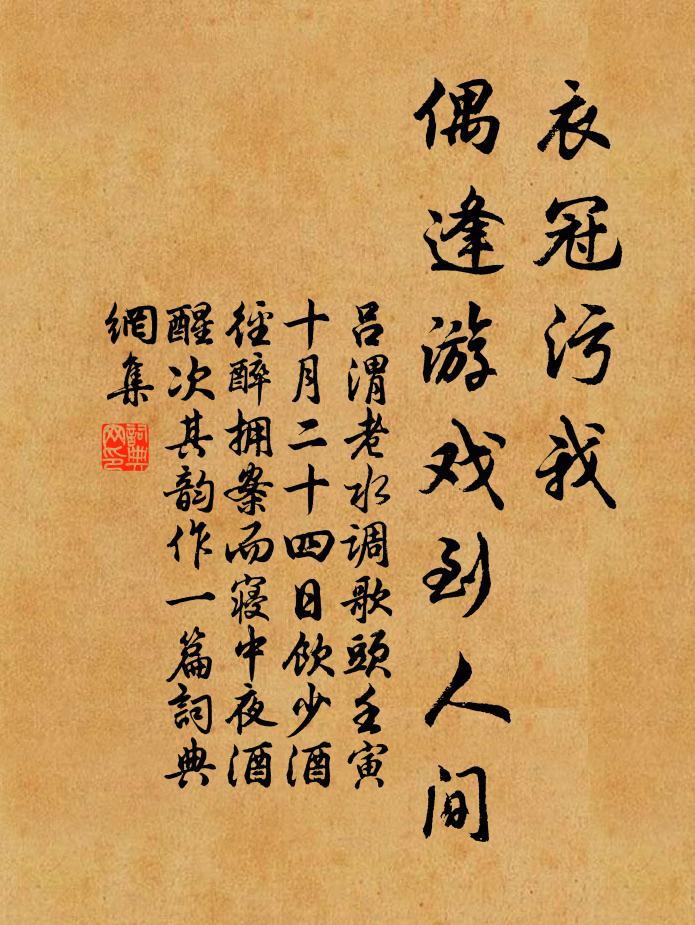 衣冠污我
偶逢游戏到人间
吕渭老水调歌頭壬寅
十月二十四日饮少酒
径醉拥案而寝中夜酒
醒次其韵作一篇詞典
網集
詞典
网印